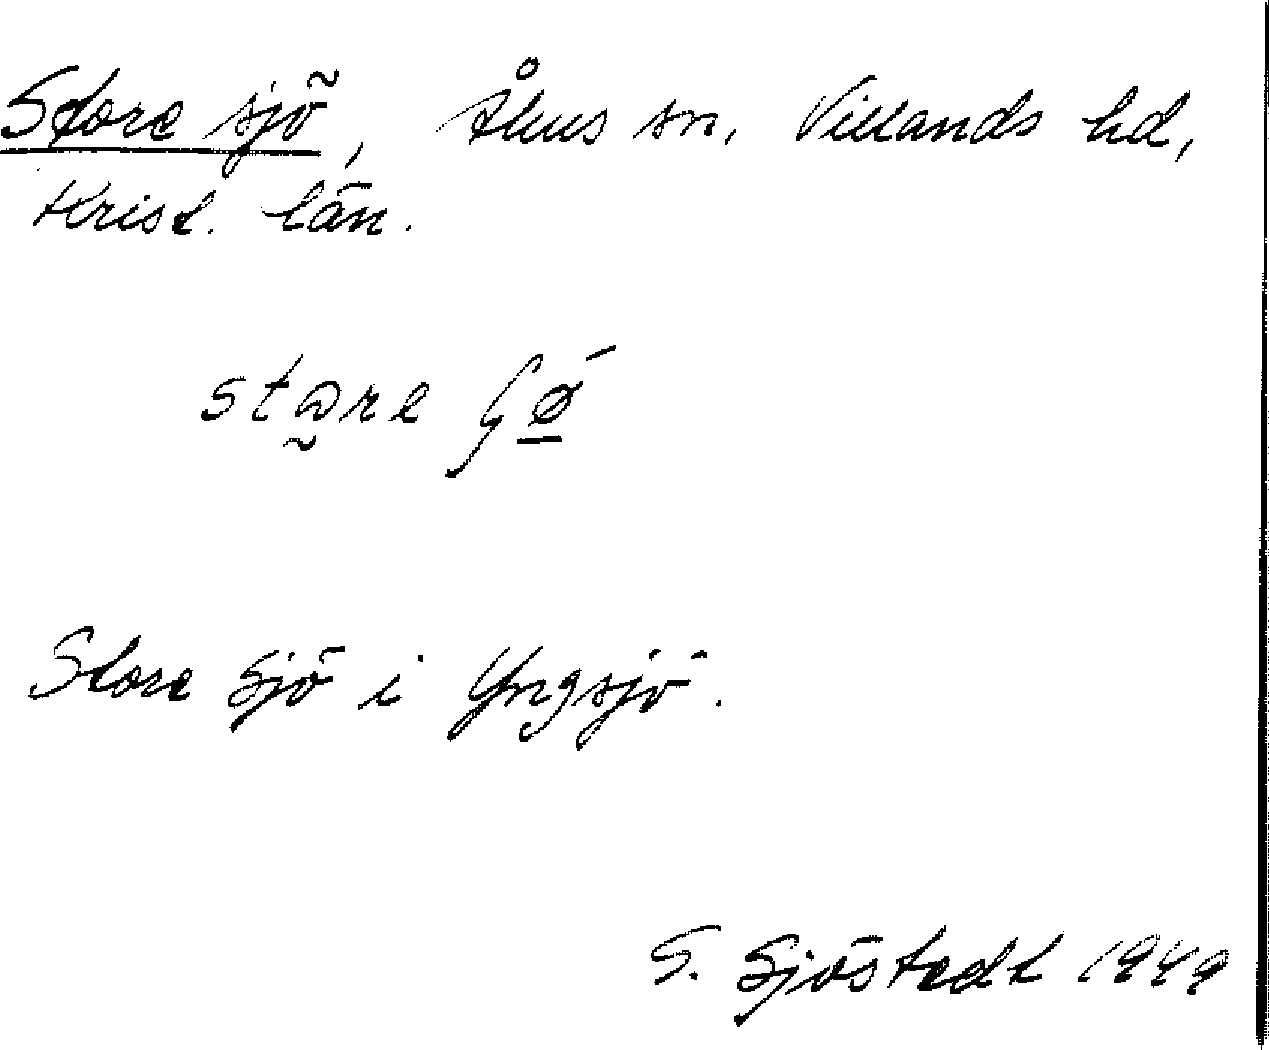 Store sjö, Åhus sn, Villands hd,
Krist. län.
Store Sjö i Yngsjö.
G. Sjöstedt 1949